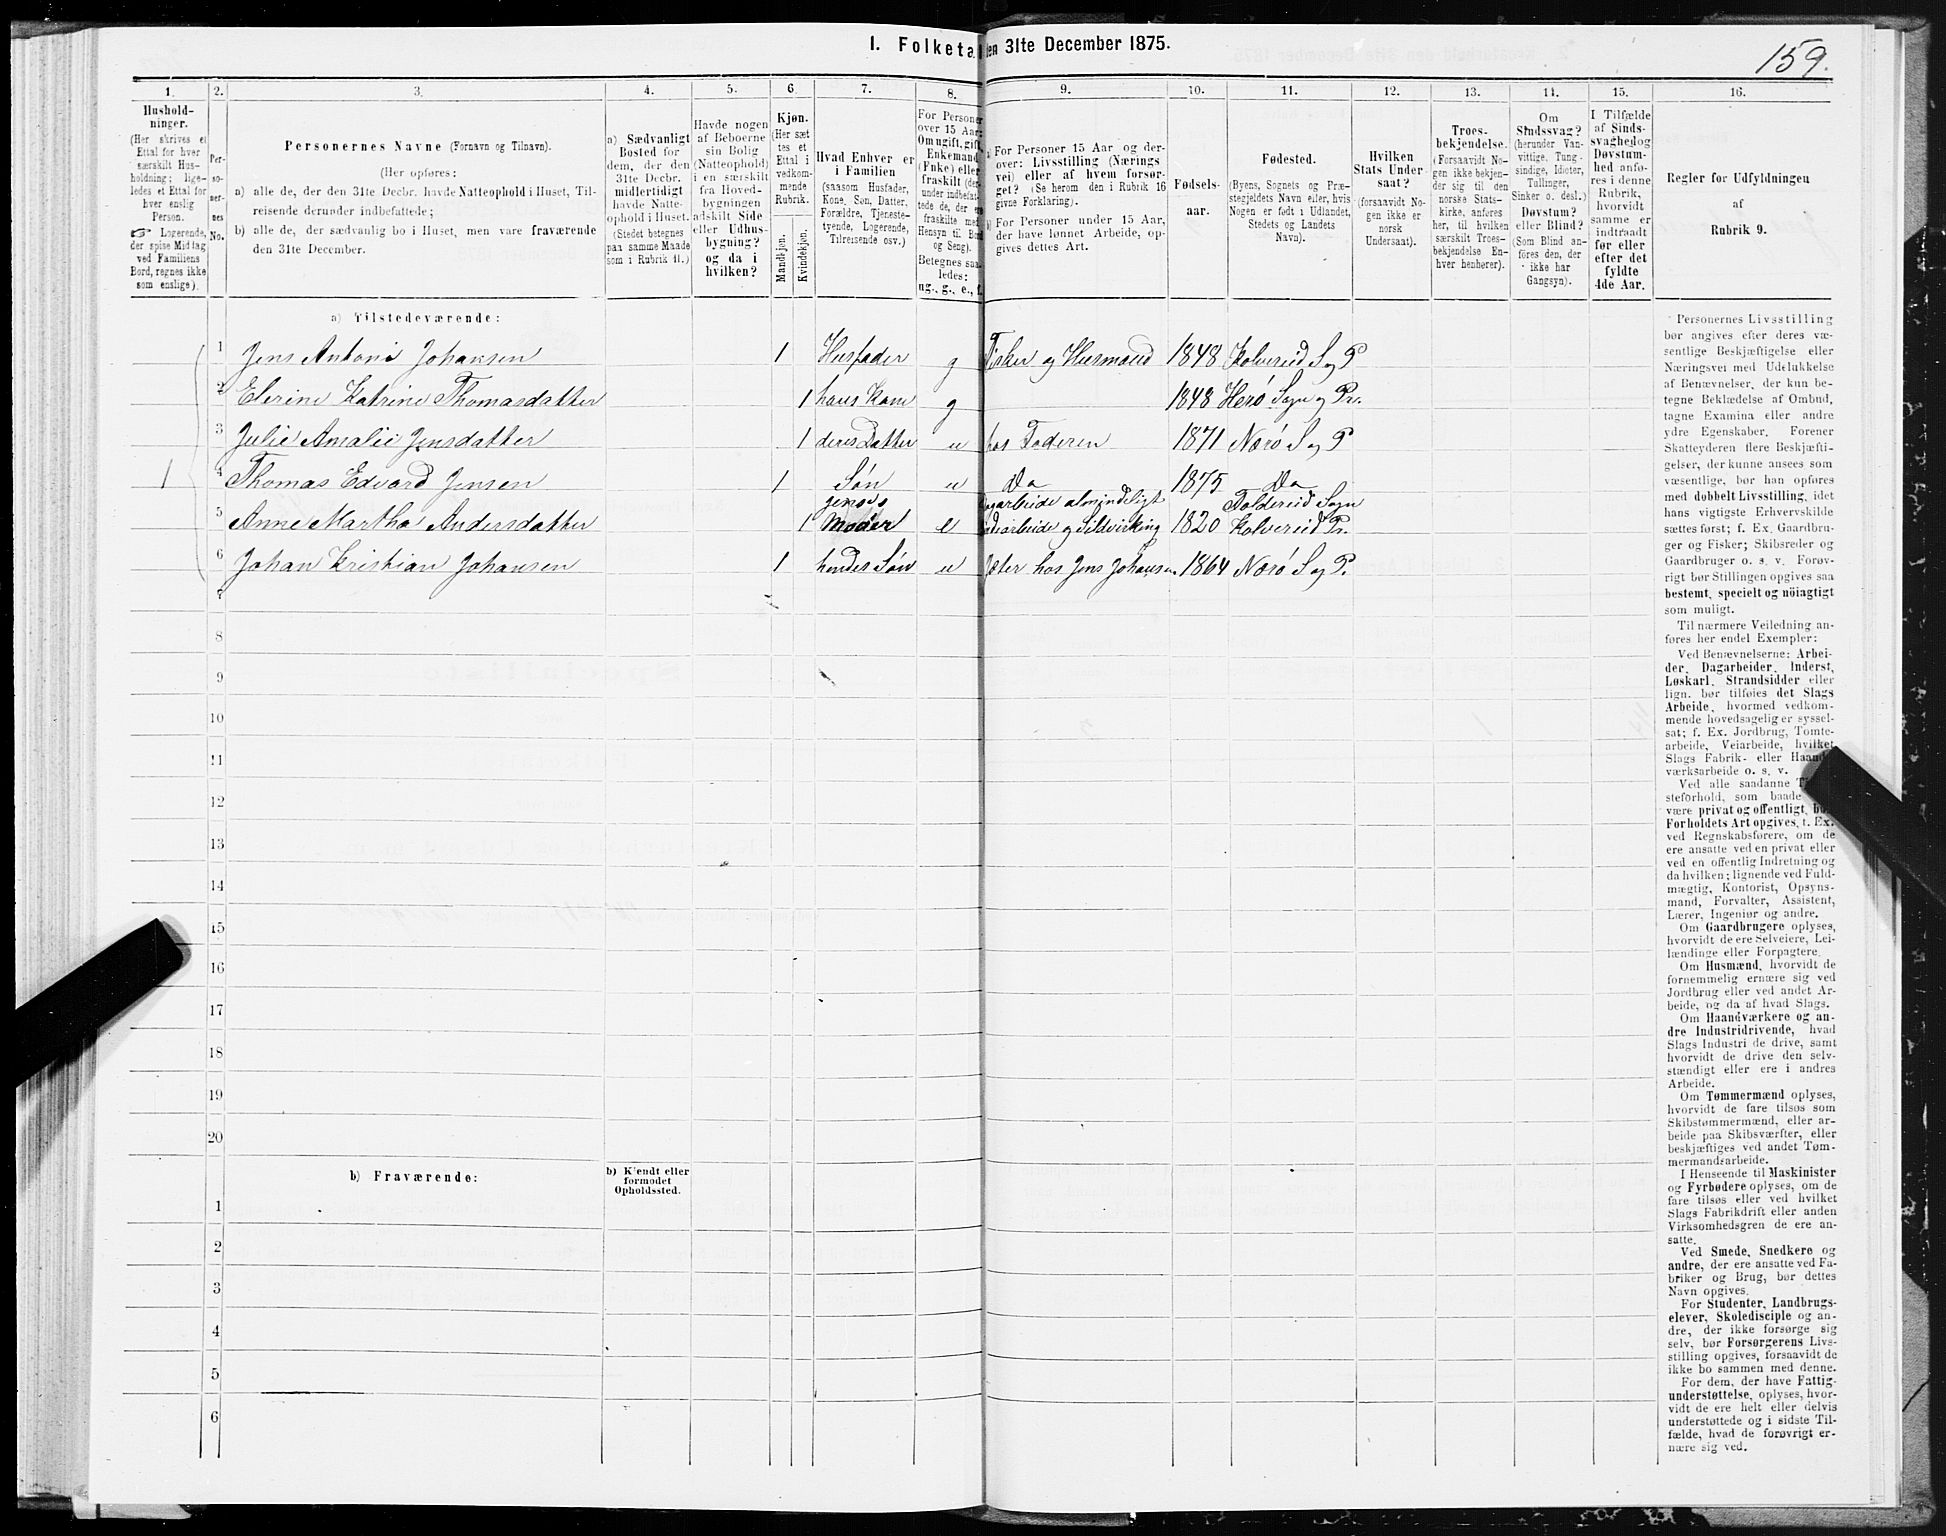 I. Folketa en 31te December 1875.
159.
1. 2. 3. 4. 5. 6. 7. 8. 9. 10. 11. 12. 13. 14. 15. 16.
Hushold-
ninger.
(Her skrives et
Ettal for hver
særskilt Hus-
holdning; lige-
ledes et Ettal for
hver enslig
Person.
☞ Logerende,
der spise Middag
ved Familiens
Bord, regnes ikke
som enslige).
Per-
so-
ner-
nes
No.
Personernes Navne (Fornavn og Tilnavn).
(Her opføres:
a) alle de, der den 31te Decbr. havde Natteophold i Huset, Til-
reisende derunder indbefattede;
b) alle de, der sædvanlig bo i Huset, men vare fraværende
den 31te December.
a) Sædvanligt
Bosted for
dem, der den
31te Decbr.
midlertidigt
havde Natte-
ophold i Huset.
(Stedet betegnes
paa samme Maade
som i Rubrik 11.)
Havde nogen
af Beboerne
sin Bolig
(Natteophold)
i en særskilt
fra Hoved-
bygningen
adskilt Side
eller Udhus-
bygning?
og da i
hvilken?
Kjøn.
(Her sæt-
tes et
Ettal i
vedkom-
mende
Rubrik.
Mandkjøn.
Kvindekjøn.
Hvad Enhver er
i Familien
(saasom Husfader,
Kone, Søn, Datter,
Forældre, Tjeneste-
tyende, Logerende,
Tilreisende osv.)
For Personer
over 15 Aar:
Om ugift, gift,
Enkemand
(Enke) eller
fraskilt (der-
under indbefat-
tede de, der ere
fraskilte med
Hensyn til Bord
og Seng).
Betegnes saa-
ledes:
ug., g., e., f.
a) For Personer 15 Aar og der-
over: Livsstilling (Nærings-
vei) eller af hvem forsør-
get? (Se herom den i Rubrik 16
givne Forklaring).
b) For Personer under 15 Aar,
der have lønnet Arbeide, op-
gives dettes Art.
Fødsels-
aar.
Fødested.
(Byens, Sognets og Præ-
stegjeldets Navn eller, hvis
Nogen er født i Udlandet,
Stedets og Landets
Navn).
Hvilken
Stats Under-
saat?
(forsaavidt No-
gen ikke er
norsk
Undersaat).
Troes-
bekjendelse.
(Forsaavidt No-
gen ikke bekjen-
der sig til den
norske Stats-
kirke, anføres
her, til hvilken
særskilt Troes-
bekjendelse En-
hver henhører).
Om
Sindssvag?
(herunder Van-
vittige, Tung-
sindige, Idioter,
Tullinger,
Sinker o. desl.)
Døvstum?
eller Blind?
(Som Blind an-
føres den, der
ikke har
Gangsyn).
I Tilfælde
af Sinds-
svaghed og
Døvstum-
hed anfø-
res i denne
Rubrik,
hvorvidt
samme er
indtraadt
før eller
efter det
fyldte
4de Aar.
Regler for Udfyldningen
af
Rubrik 9.
a) Tilstedeværende:
1 Jens Antoni Johansen 1 Husfader g Fisker og Husmand 1848 Kolvereid S og P
2 Elerine Katrine Thomasdatter 1 hans Kone g 1848 Herø Sogn og Pr.
3 Julie Amalie Jensdatter 1 deres Datter u hos Faderen 1871 Nærø S og P
1 4 Thomas Edvard Jensen 1 Søn u Da 1875 Da
5 Anne Martha Andersdatter 1 Jens's Moder e arbeide almindeligt arbeide og Sildvirking 1820 Foldereid Sogn Kolvereid Pr.
6 Johan Kristian Johansen 1 hendes Søn u Jæter hos Jens Johansen. 1864 Nærø S og P.
7
8
9
10
11
12
13
14
15
16
17
18
19
20
b) Fraværende:
b) Kjendt eller
formodet
Opholdssted.
1
2
3
4
5
6
Personernes Livsstilling
bør angives efter deres væ-
sentlige Beskjæftigelse eller
Næringsvei med Udelukkelse
af Benævnelser, der kun be-
tegne Beklædelse af Ombud,
tagne Examina eller andre
ydre Egenskaber. Forener
Skatteyderen flere Beskjæfti-
gelser, der kunne ansees som
væsentlige, bør han opføres
med dobbelt Livsstilling, idet
hans vigtigste Erhvervskilde
sættes først; f. Ex. Gaardbru-
ger og Fisker; Skibsreder og
Gaardbruger o. s. v. Forøv-
rigt bør Stillingen opgives saa
bestemt, specielt og nöiagtigt
som muligt.
Til nærmere Veiledning an-
føres her endel Exempler:
Ved Benævnelserne: Arbei-
der, Dagarbeider, Inderst,
Løskarl, Strandsidder eller
lign. bør tilføies det Slags
Arbeide, hvormed vedkom-
mende hovedsagelig er syssel-
sat; f. Ex. Jordbrug, Tomte-
arbeide, Veiarbeide, hvilket
Slags Fabrik- eller Haand-
værksarbeide o. s. v.
Ved alle saadanne
steforhold, som baade
være privat og offentligt, bør
Forholdets Art opgives, f. Ex.
ved Regnskabsførere, om de
ere ansatte ved en privat eller
ved en offentlig Indretning og
da hvilken; lignende ved Fuld-
mægtig, Kontorist, Opsyns-
mand, Forvalter, Assistent,
Lærer, Ingeniør og andre.
Om Gaardbrugere oplyses,
hvorvidt de ere Selveiere, Lei-
lændinge eller Forpagtere.
Om Husmænd, hvorvidt de
fornemmelig ernære sig ved
Jordbrug eller ved andet Ar-
beide, og da af hvad Slags.
Om Haandværkere og an-
dre Industridrivende, hvad
Slags Industri de drive, samt
hvorvidt de drive den selv-
stændigt eller ere i andres
Arbeide.
Om Tømmermænd oplyses,
hvorvidt de fare tilsøs som
Skibstømmermænd, eller ar-
beide paa Skibsværfter, eller
beskjæftiges ved andet Tøm-
mermandsarbeide.
I Henseende til Maskinister
og Fyrbødere oplyses, om de
fare tilsøs eller ved hvilket
Slags Fabrikdrift eller anden
Virksomhedsgren de ere an-
satte.
Ved Smede, Snedkere og
andre, der ere ansatte ved Fa-
briker og Brug, bør dettes
Navn opgives.
For Studenter, Landbrugs-
elever, Skoledisciple og an-
dre, der ikke forsørge sig
selv, bør Forsørgerens Livs-
stilling opgives, forsaavidt de
ikke bo sammen med denne.
For dem, der have Fattig-
understøttelse, oplyses, hvor-
vidt de ere helt eller delvis
understøttede og i sidste Til-
fælde, hvad de forøvrigt er-
nære sig ved.